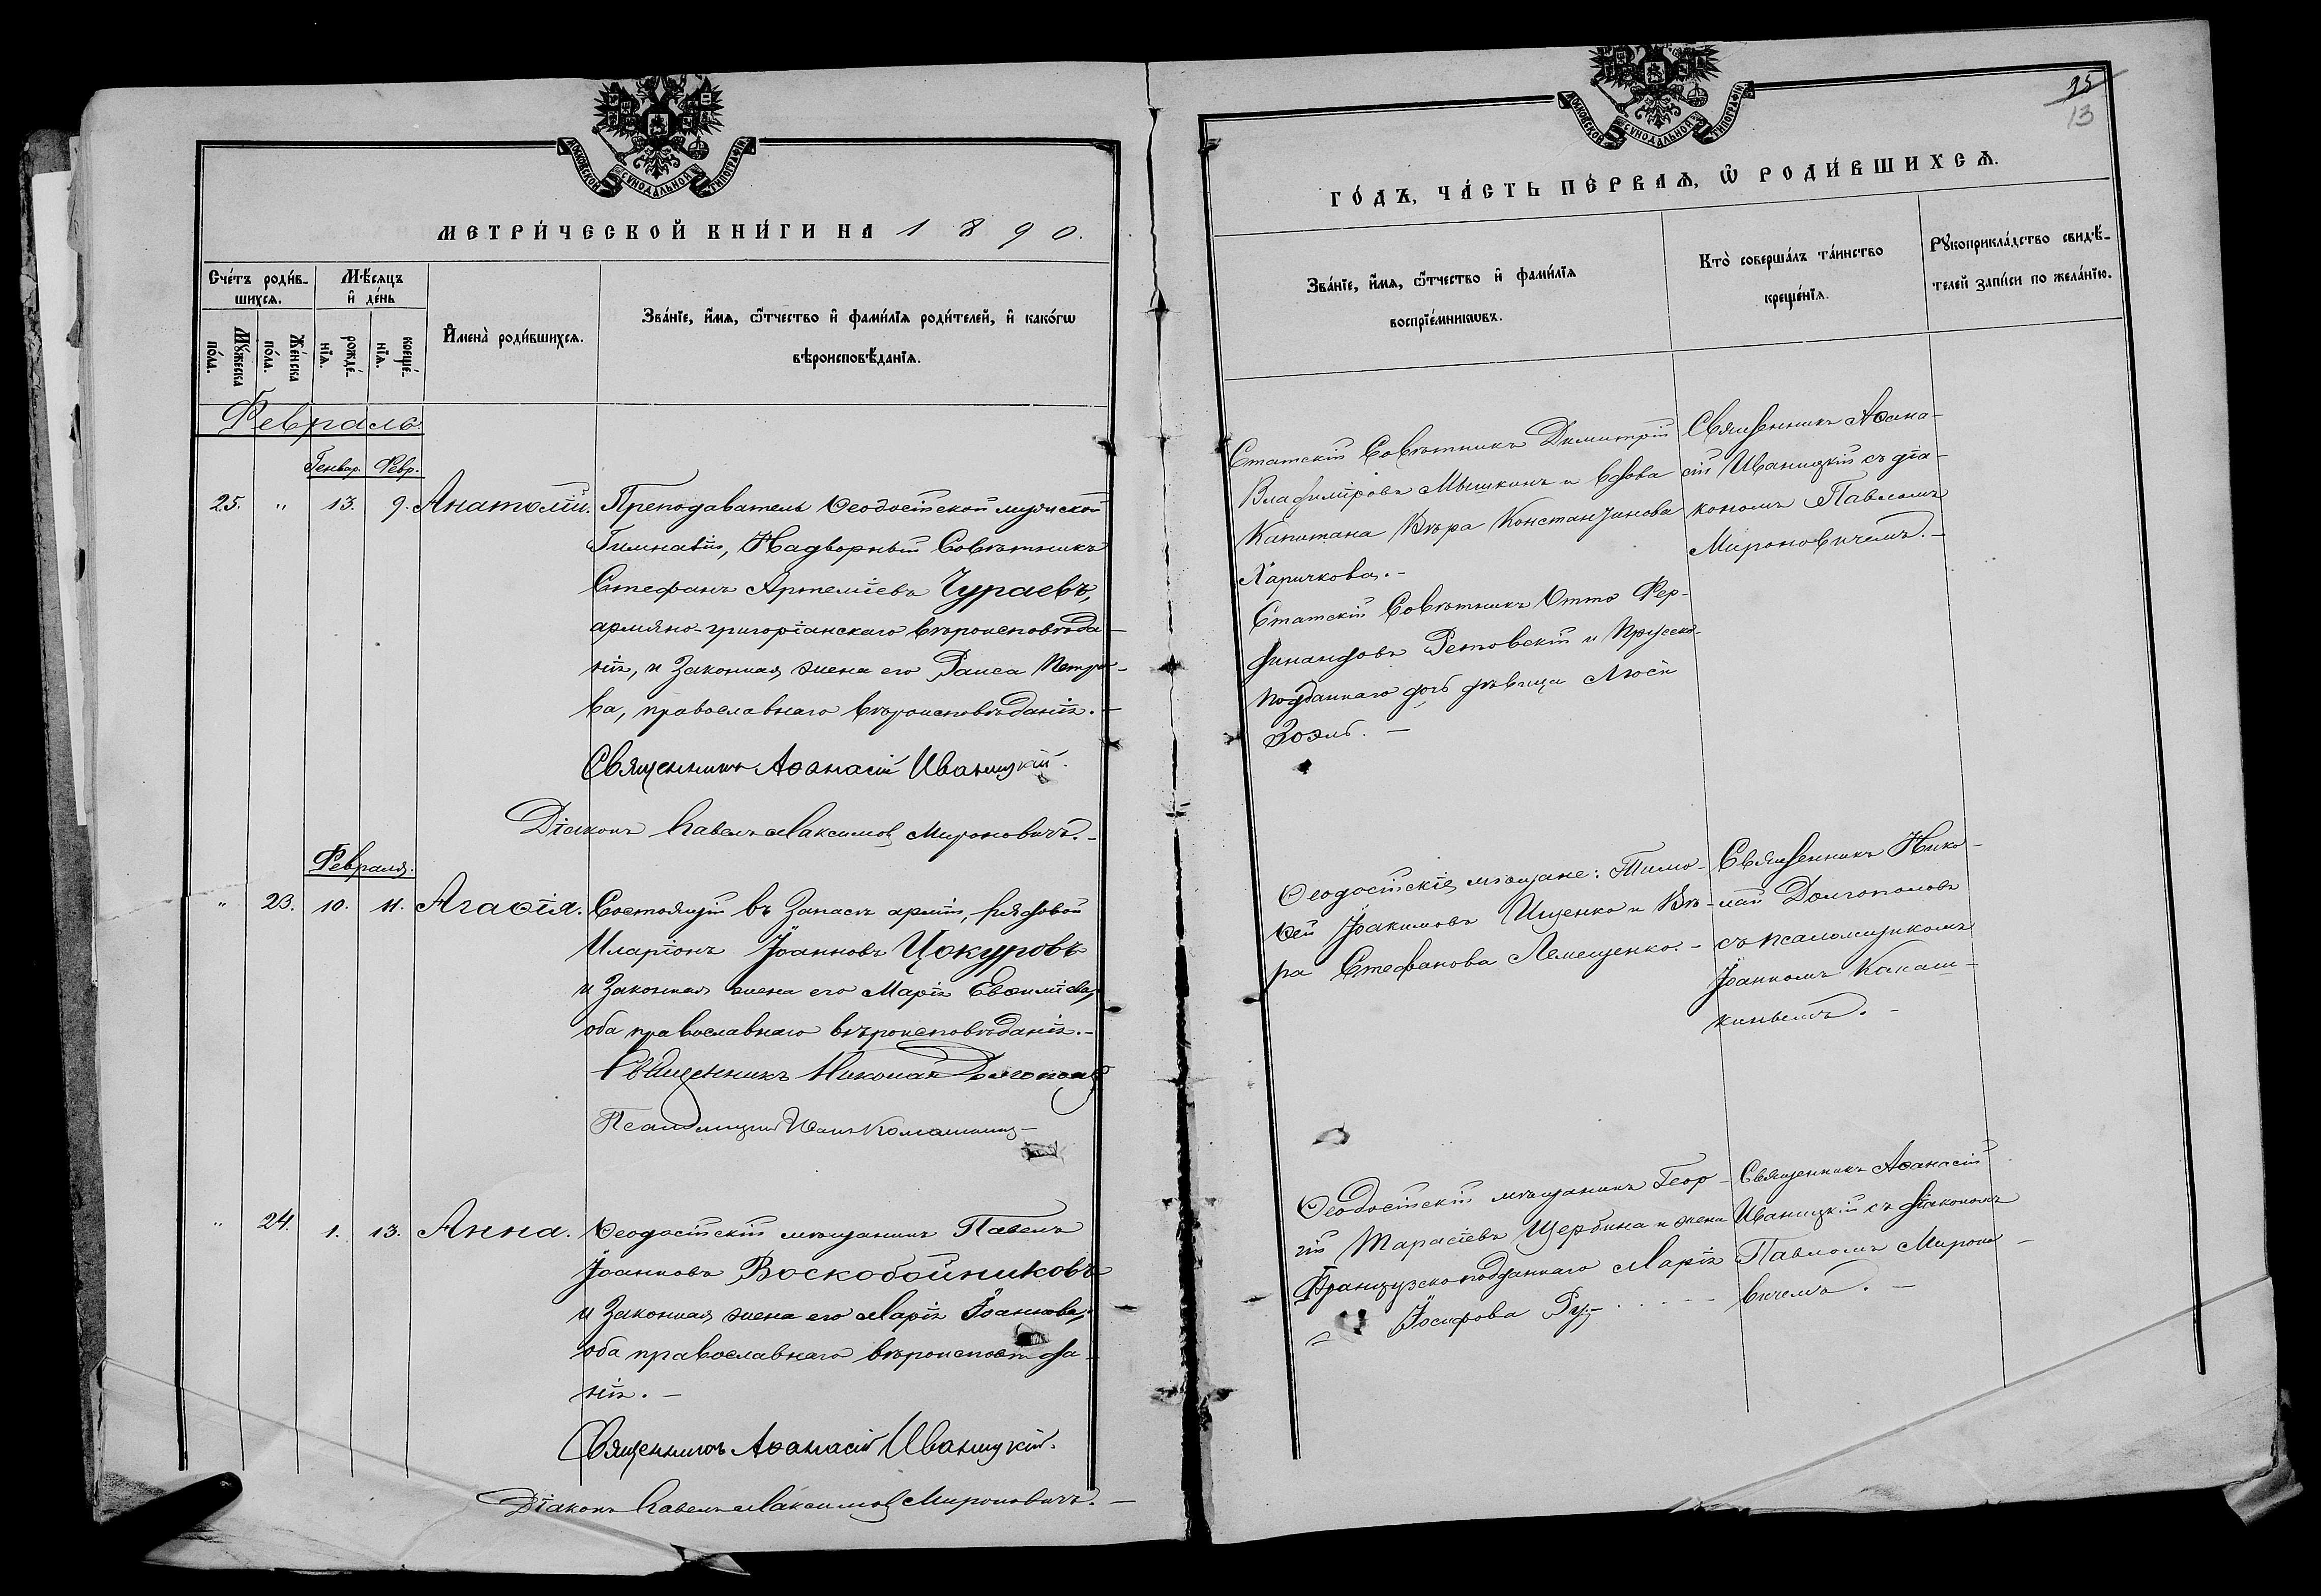 МОСКОВСКОЙ СѴНОДАЛЬНОЙ ТИПОГРАФІИ
МЕТРИ́ЧЕСКОЙ КНИ́ГИ НА 1890.
Сче́тъ роди́в-
шихсѧ.
Мѣ́сѧцъ
и҆ де́нь
И҆мена̀ роди́вшихсѧ.
Зва́нїе, и҆́мѧ, ѻ҆́тчество и҆ фами́лїѧ роди́телей, и҆ како́гѡ
вѣроисповѣ́данїѧ.
Мꙋ́жеска
по́ла.
Же́нска
по́ла.
рожде́-
нїѧ.
креще́-
нїѧ.
Февраль.
Генвар. Февр.
25. " 13. 9. Анатолій. Преподаватель Ѳеодосійской мужской
Гимназіи, Надворный Совѣтникъ
Стефанъ Артеміевъ Чураевъ,
армяно-григоріанскаго вѣроисповѣда-
нія, и законная жена его Раиса Петро-
ва, православнаго вѣроисповѣданія. –
Священникъ Аѳанасій Иваницкій.
Діаконъ Павелъ Максимов Мироновичъ. –
Февраля.
" 23. 10. 11. Агаѳія. Состоящій въ Запасѣ арміи, рядовой
Иларіонъ Іоанновъ Цокуровъ
и законная жена его Марія Евѳиміева,
оба православнаго вѣроисповѣданія. –
Священникъ Николай Долгополов
Псаломщикъ Иоан
" 24. 1. 13. Анна. Ѳеодосійскій мѣщанинъ Павелъ
Іоанновъ Воскобойниковъ
и законная жена его Марія Іоаннова,
оба православнаго вѣроисповѣда-
нія. –
Священникъ Аѳанасій Иваницкій.
Діаконъ Павелъ Максимов Мироновичъ. –
МОСКОВСКОЙ СѴНОДАЛЬНОЙ ТИПОГРАФІИ
13
ГО́ДЪ, ЧА́СТЬ ПЕ́РВАѦ, Ѽ РОДИ́ВШИХСѦ.
Зва́нїе, и҆́мѧ, ѻ҆́тчество и҆ фами́лїѧ
воспрїе́мникѡвъ.
Кто̀ соверша́лъ та́инство
креще́нїѧ.
Рꙋкоприкла́дство свидѣ́-
телей за́писи по жела́нїю.
Статскій Совѣтникъ Димитрій
Владиміровъ Мышкинъ и вдова
Капитана Вѣра Константинова
Харичкова. –
Статскій Совѣтникъ Отто Фер-
динандовъ Ретовскій и Прусско-
подданнаго дочь дѣвица Люси
Зоэль. –
Священникъ Аѳана-
сій Иваницкій съ діа-
кономъ Павломъ
Мироновичемъ. –
Ѳеодосійскіе мѣщане: Тимо-
ѳей Іоакимовъ Ищенко и Вѣ-
ра Стефанова Лемещенко. –
Священникъ Нико-
лай Долгополовъ
съ псаломщикомъ
Іоанномъ Калаш-
киньемъ. –
Ѳеодосійскій мѣщанинъ Геор-
гій Тарасіевъ Щербина и жена
Французскоподданнаго Марія
Іосифова Ру
Священникъ Аѳанасій
Иваницкій съ діакономъ
Павломъ Мироно-
вичемъ. –